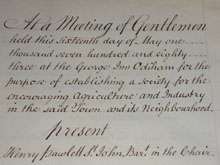 At a Meeting of Gentlemen
held this Sixteenth day of May one
thousand seven hundred and eighty
three at the George Inn Odiham for the
purpose of establishing a Society for the
encouraging Agriculture and Industry
in the said Town and its Neighbourhood.
Present
Henry Pawlett St. John, Bart. in the Chair